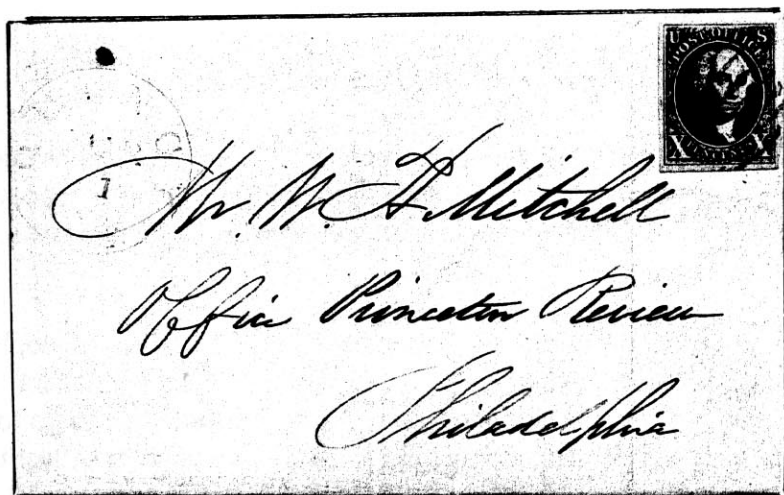 U S
POST OFFICE
X X
1
Mr. W. H. Mitchell
Office Princeton Review
Philadelphia